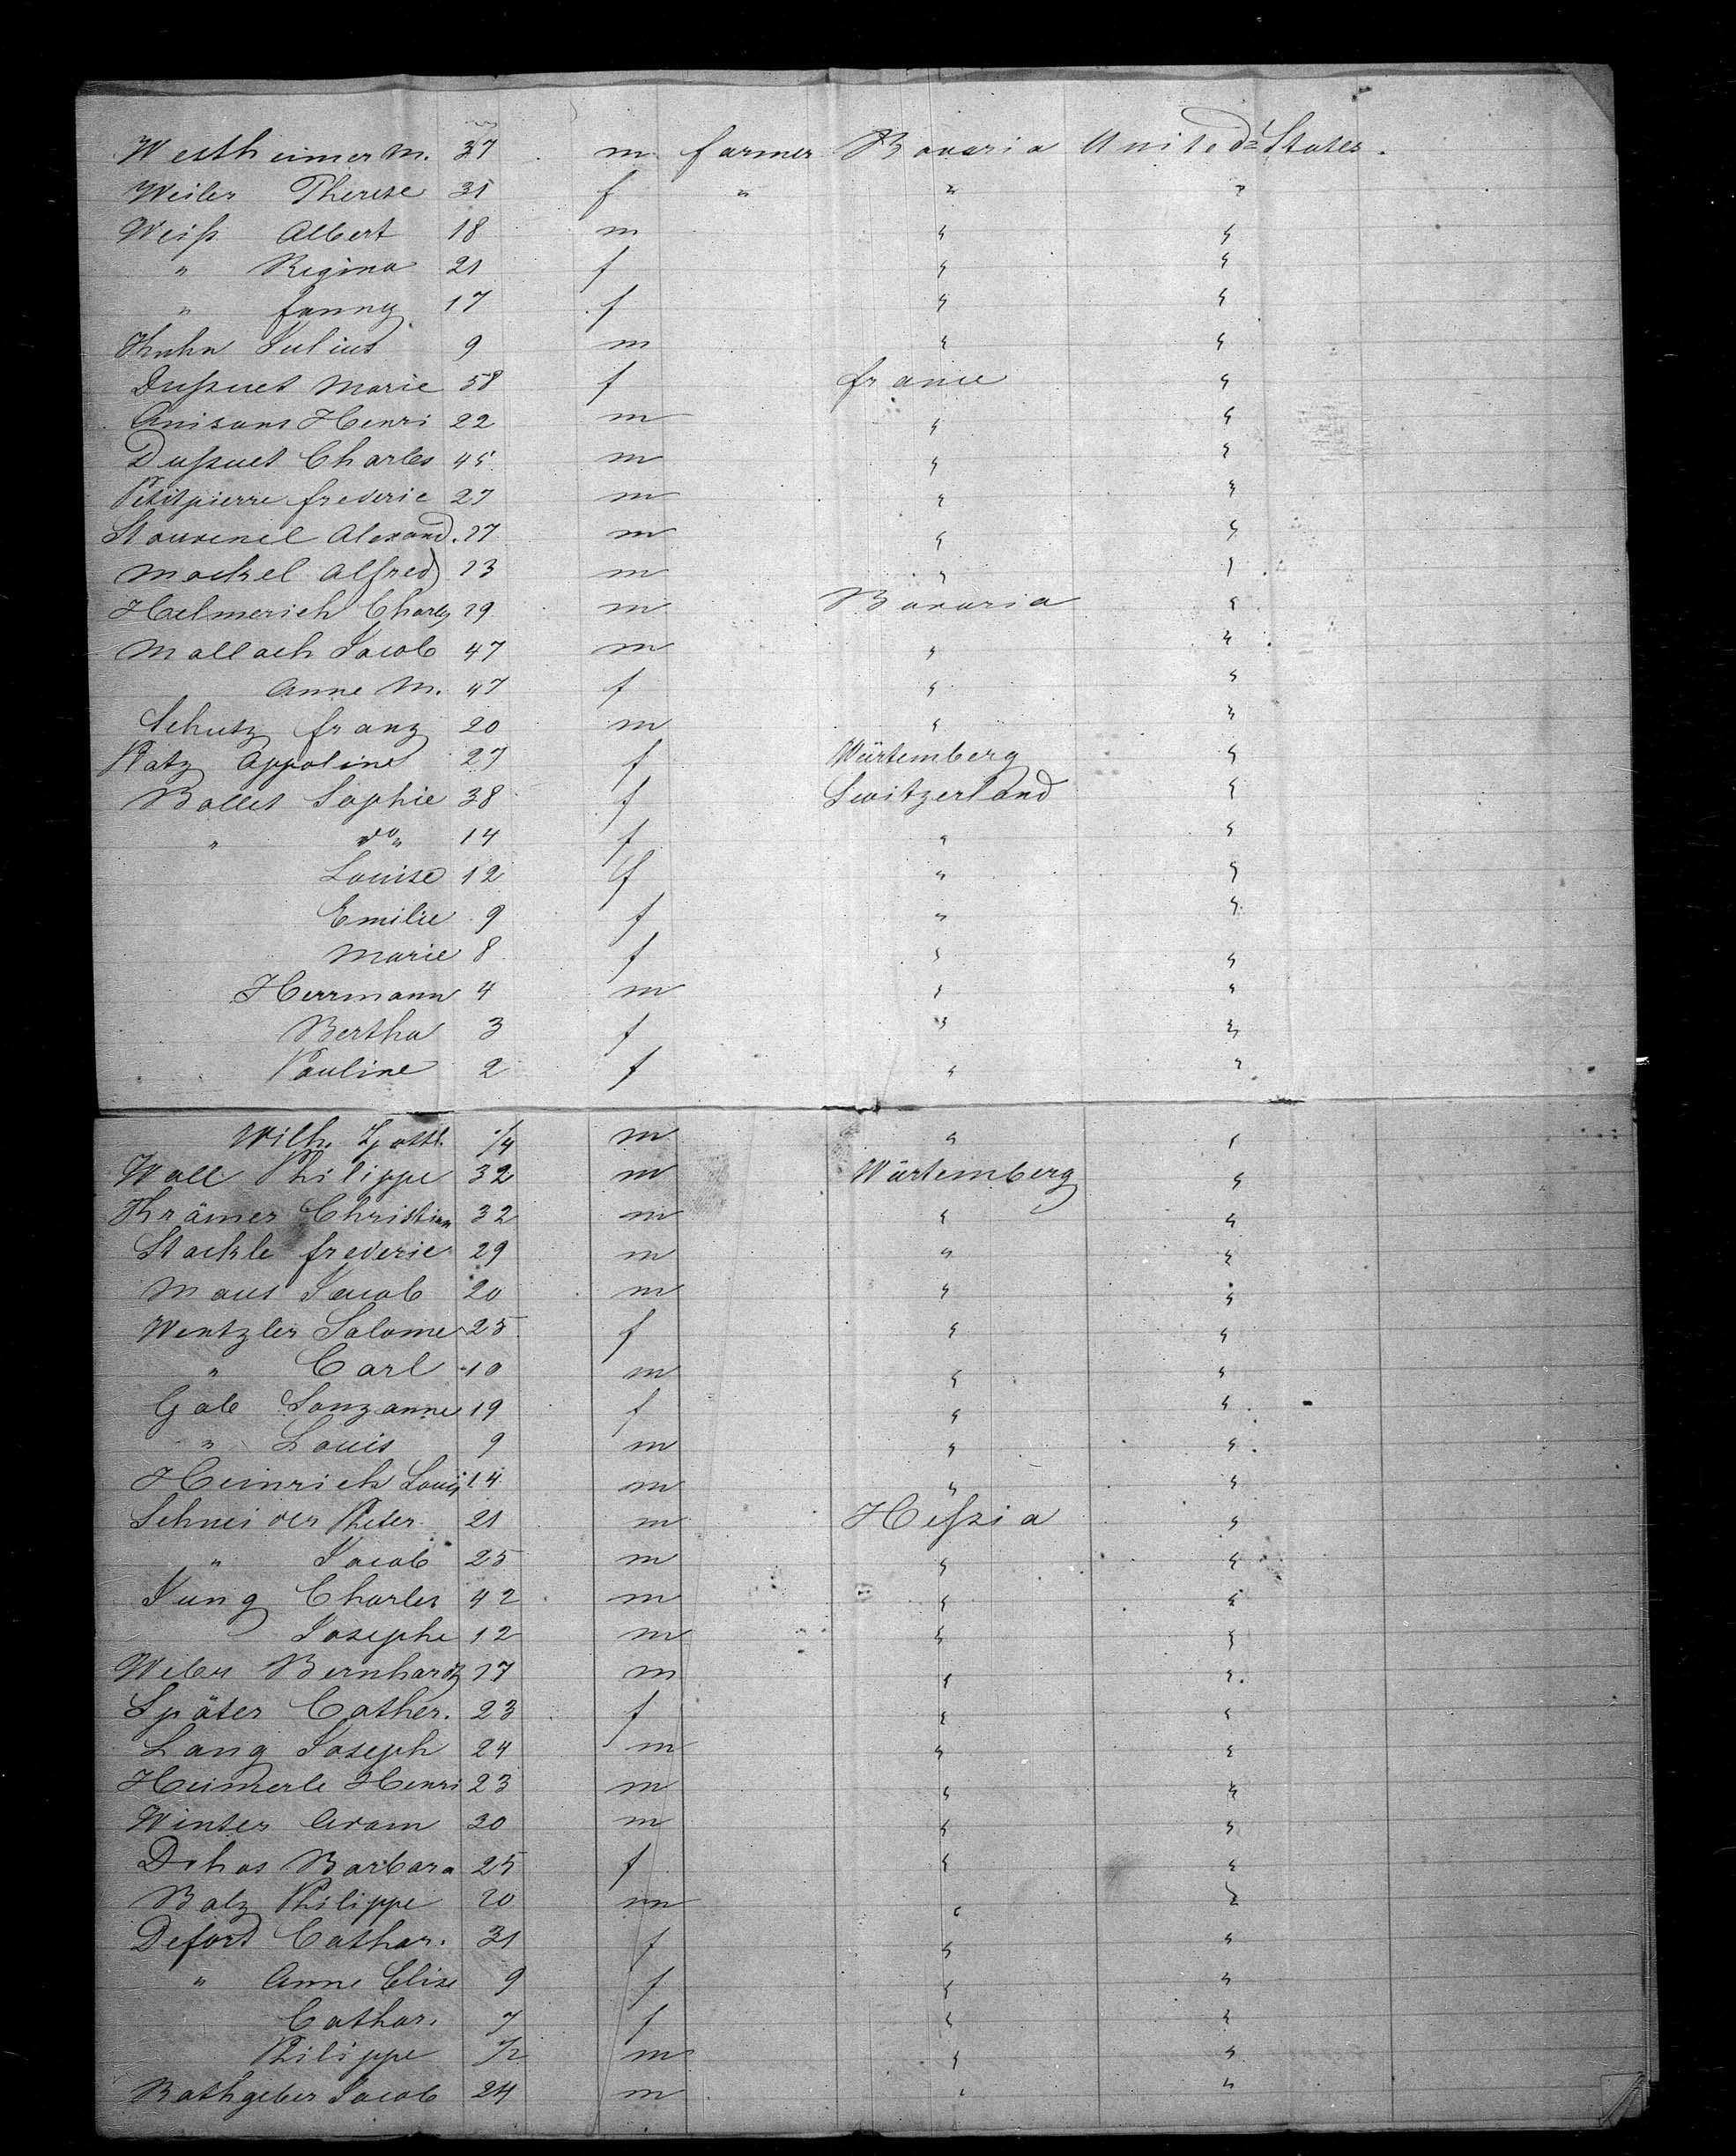 Westheimer M. 37 m farmer Bavaria United States.
Weiler Therese 31 f " " "
Weiß Albert 18 m " "
" Regina 21 f " "
" fanny 17 f " "
Kuhn Julius 9 m " "
Dußuet Marie 58 f france "
Anisans Henri 22 m " "
Dußuet Charles 45 m " "
Petitpierre frederic 27 m " "
Alexand. 27 m " "
Mackel Alfred 23 m " "
Helmerich Charles 29 m Bavaria "
Mallach Jacob 47 m " "
Anne M. 47 f " "
Schutz franz 20 m " "
Platz Appoline 27 f Würtemberg "
Bollet Sophie 38 f Switzerland "
" do " 14 f " "
Louise 12 f " "
Emilie 9 f " "
Marie 8 f " "
Herrmann 4 m " "
Bertha 3 f " "
Pauline 2 f " "
Wilh. Gottl. 1/4 m " "
Wall Philippe 32 m Würtemberg "
Krämer Christian 32 m " "
Stackle frederic 29 m " "
Maus Jacob 20 m " "
Wentzler Salome 25 f " "
" Carl 10 m " "
Gab Souzanne 19 f " "
" Louis 9 m " "
Heinrich Louis 14 m " "
Schneider Peter 21 m Heßia "
" Jacob 25 m " "
Jung Charles 42 m " "
Josephe 12 m " "
Weber Bernhard 17 m " "
Später Cather. 23 f " "
Lang Joseph 24 m " "
Heimerle Henri 23 m " "
Winter Adam 30 m " "
Barbara 25 f " "
Balz Philippe 20 m " "
Deford Cathar. 31 f " "
" Anne Elise 9 f " "
Cathar. 7 f " "
Philippe 1/2 m " "
Rathgeber Jacob 24 m " "